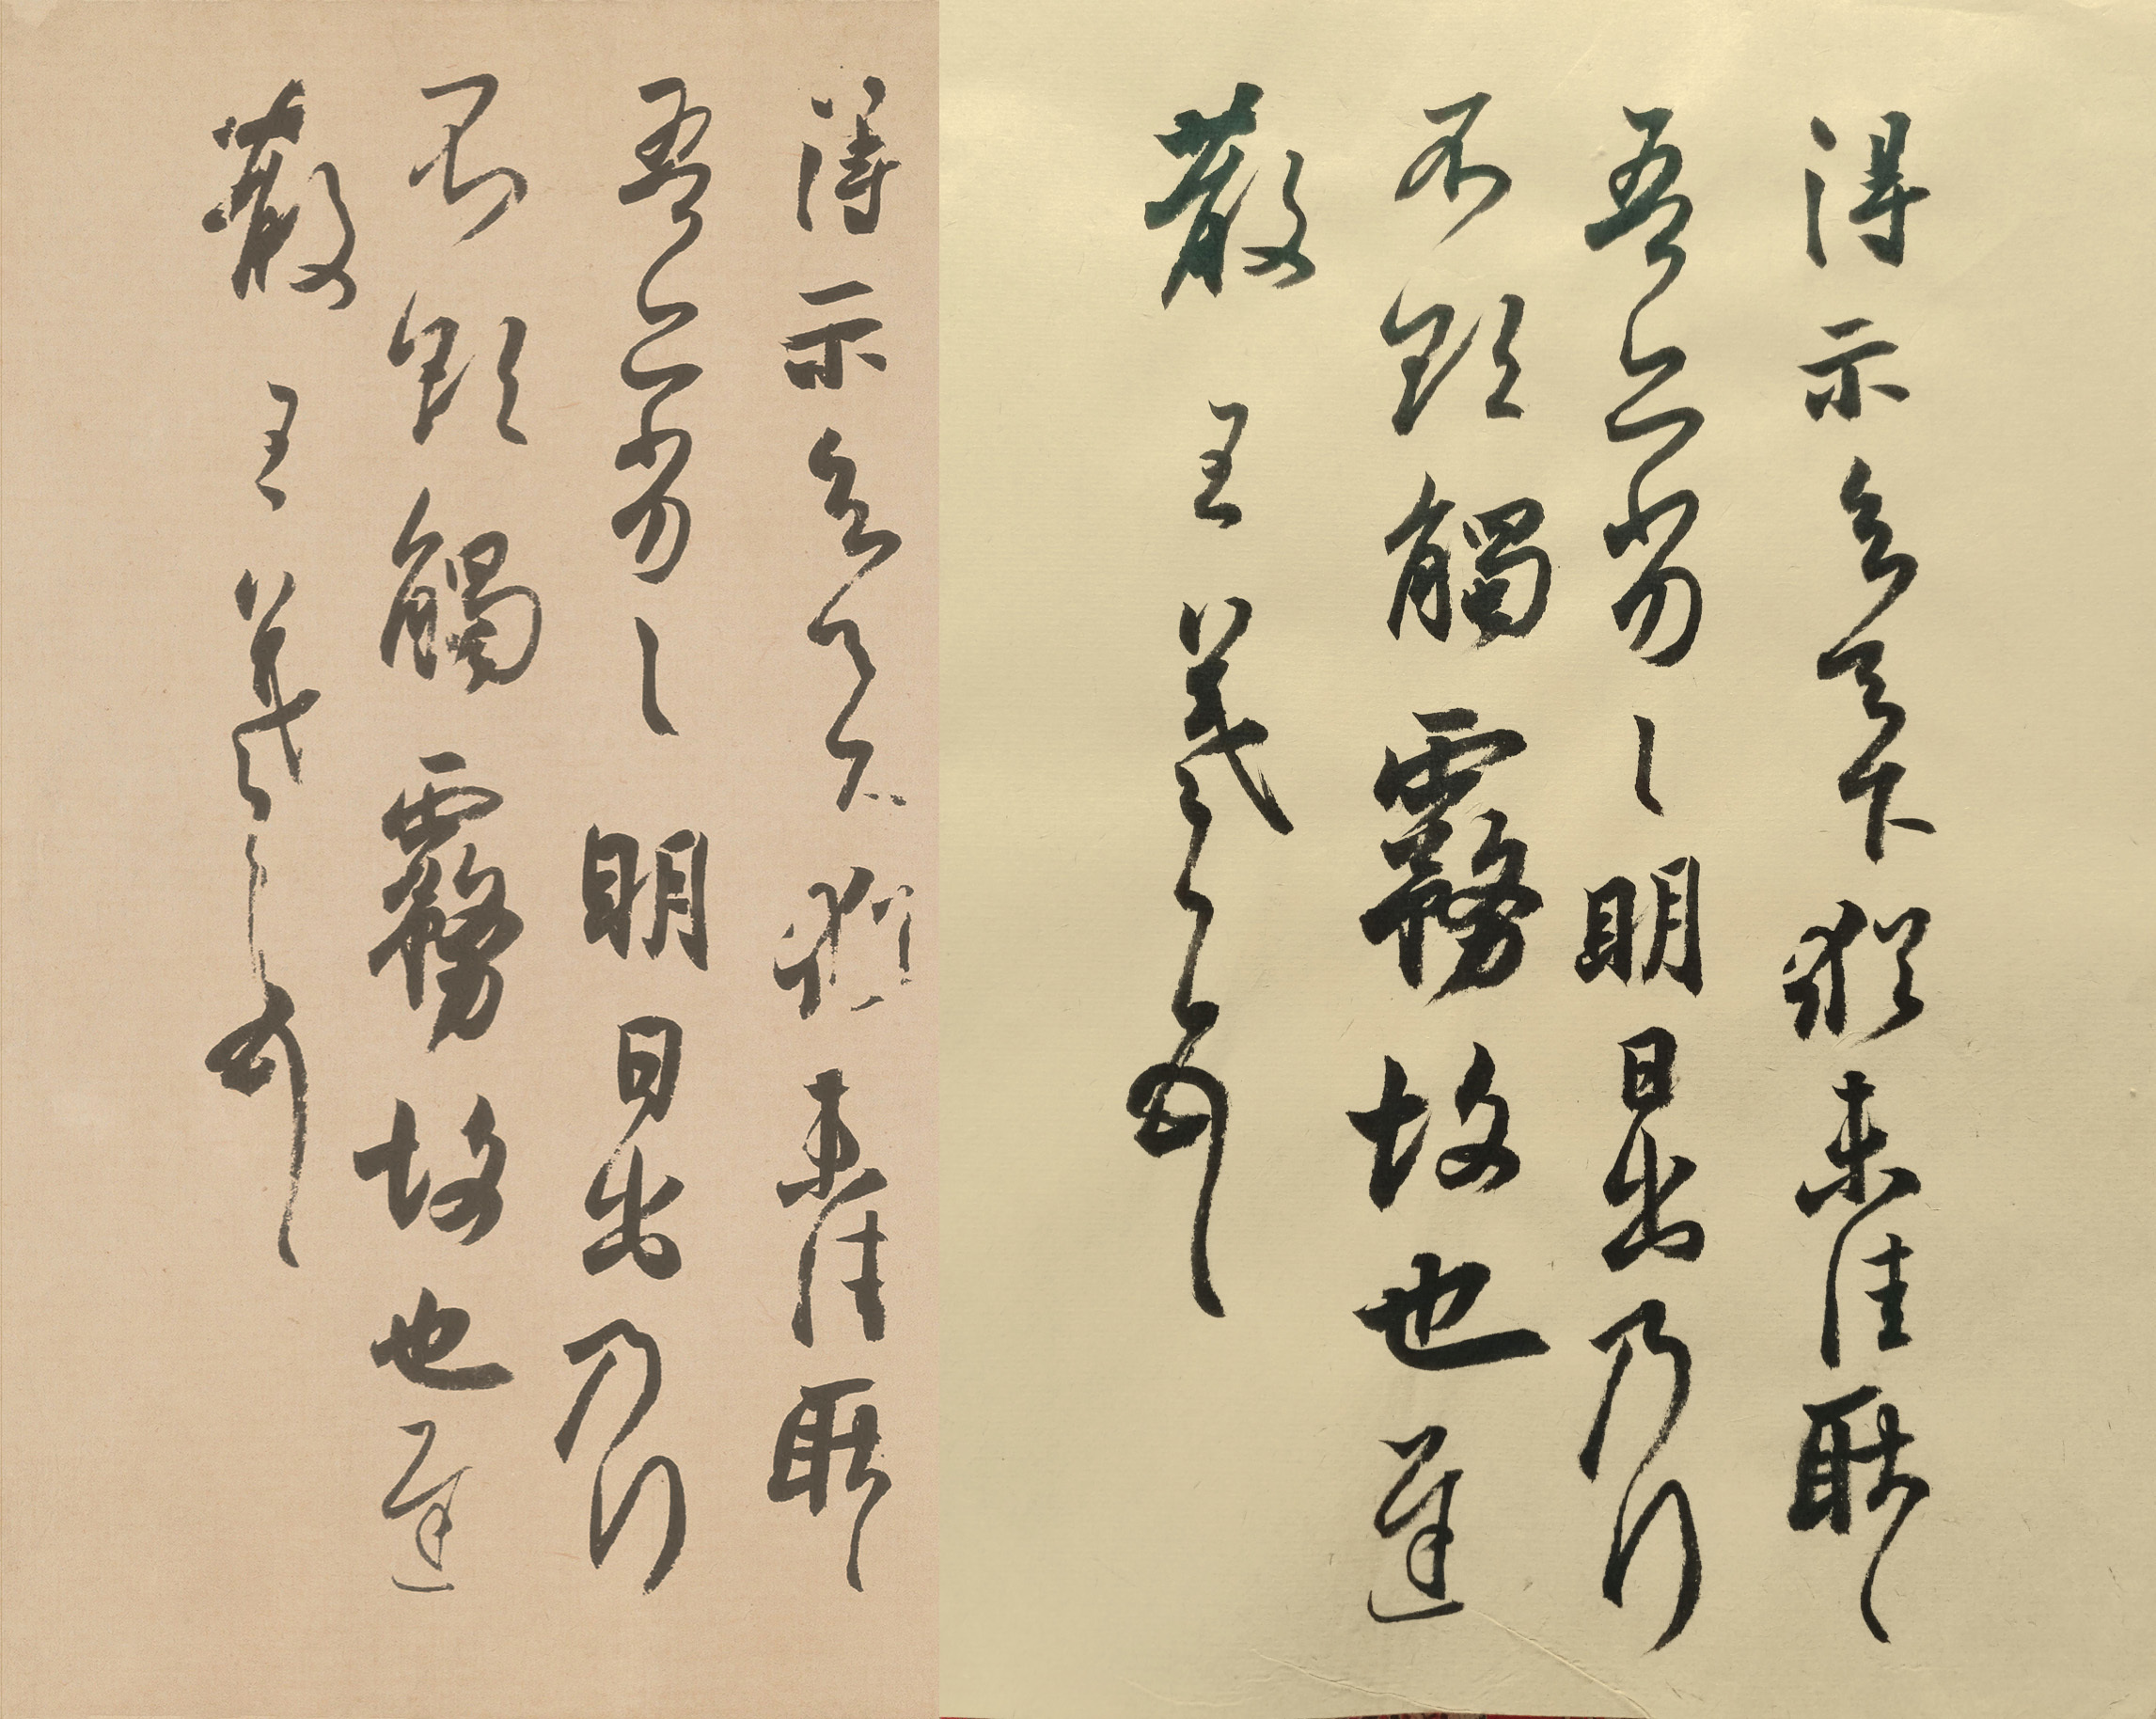 得示知足下猶未佳耿々
吾亦劣々明日出乃行
不欲觸霧故也遲
散王羲之頓首
得示知足下猶未佳耿々
吾亦劣々明日出乃行
不欲觸霧故也遲
散王羲之頓首